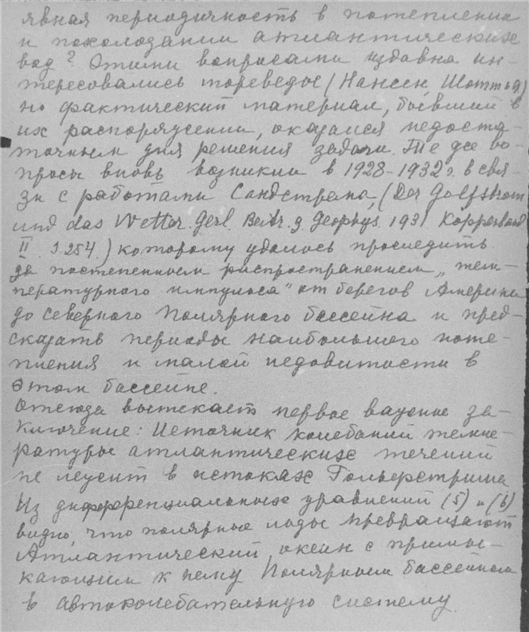 явная периодичность в потеплении
и похолодании атлантических
вод? Этими вопросами издавна ин-
тересовались мореведы (Нансен, Шотт и др)
но фактический материал, бывший в
их распоряжении, оказался недоста-
точным для решения задачи. Те же во-
просы вновь возникли в 1928-1932 г. в свя-
зи с работами Сандстрема, (Der Golfstrom
und das Wetter. Gerl. Beitr. z. Geophys. 1931 Köppenband
II S. 254.) которому удалось проследить
за постепенным распространением „тем-
пературного импульса" от берегов Америки
до северного Полярного бассейна и пред-
сказать периоды наибольшего поте-
пления и малой ледовитости в
этом бассейне.
Отсюда вытекает первое важное за-
ключение: Источник колебаний темпе-
ратуры атлантических течений
не лежит в истоках Гольфстрима
Из дифференциальных уравнений (5) и (6)
видно, что полярные льды превращают
Атлантический океан с примы-
кающим к нему Полярным бассейном
в автоколебательную систему.